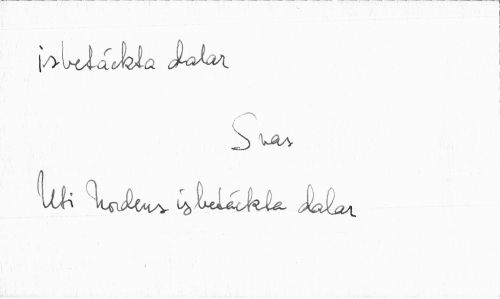 isbetäckta dalar
Svas
Uti Nordens isbetäckta dalar